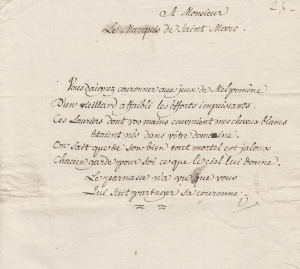 A Monsieur
Le Marquis de Saint Marc.
Vous daignez couronner aux jeux de Melpomène
D'un vieillard affaibli les efforts impuissants.
Ces Lauriers dont vos mains couvraient mes cheveux blancs
étaient nés dans votre domaine.
On sait que de son bien tout mortel est jaloux
Chacun garde pour soi ce que le ciel lui donne.
Le parnasse n'a vu que vous
Qui sait partager sa couronne.